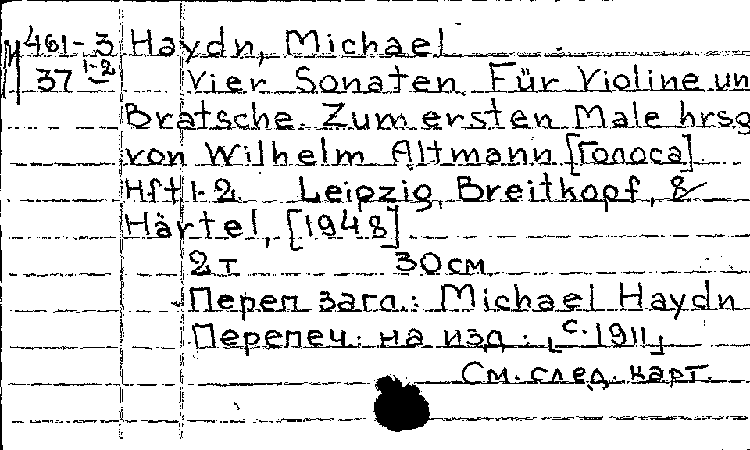 М 461-3 Haydn, Michael
37 1-2 Vier Sonaten Für Violine un
Bratsche. Zum ersten Male hrsg
von Wilhelm Altmann [Голоса]
Hft 1-2 Leipzig, Breitkopf, &
Härtel, [1948]
2 т 30 см
Переп загл.: Michael Haydn
Перепеч. на изд. [с. 1911]
См. след. карт.